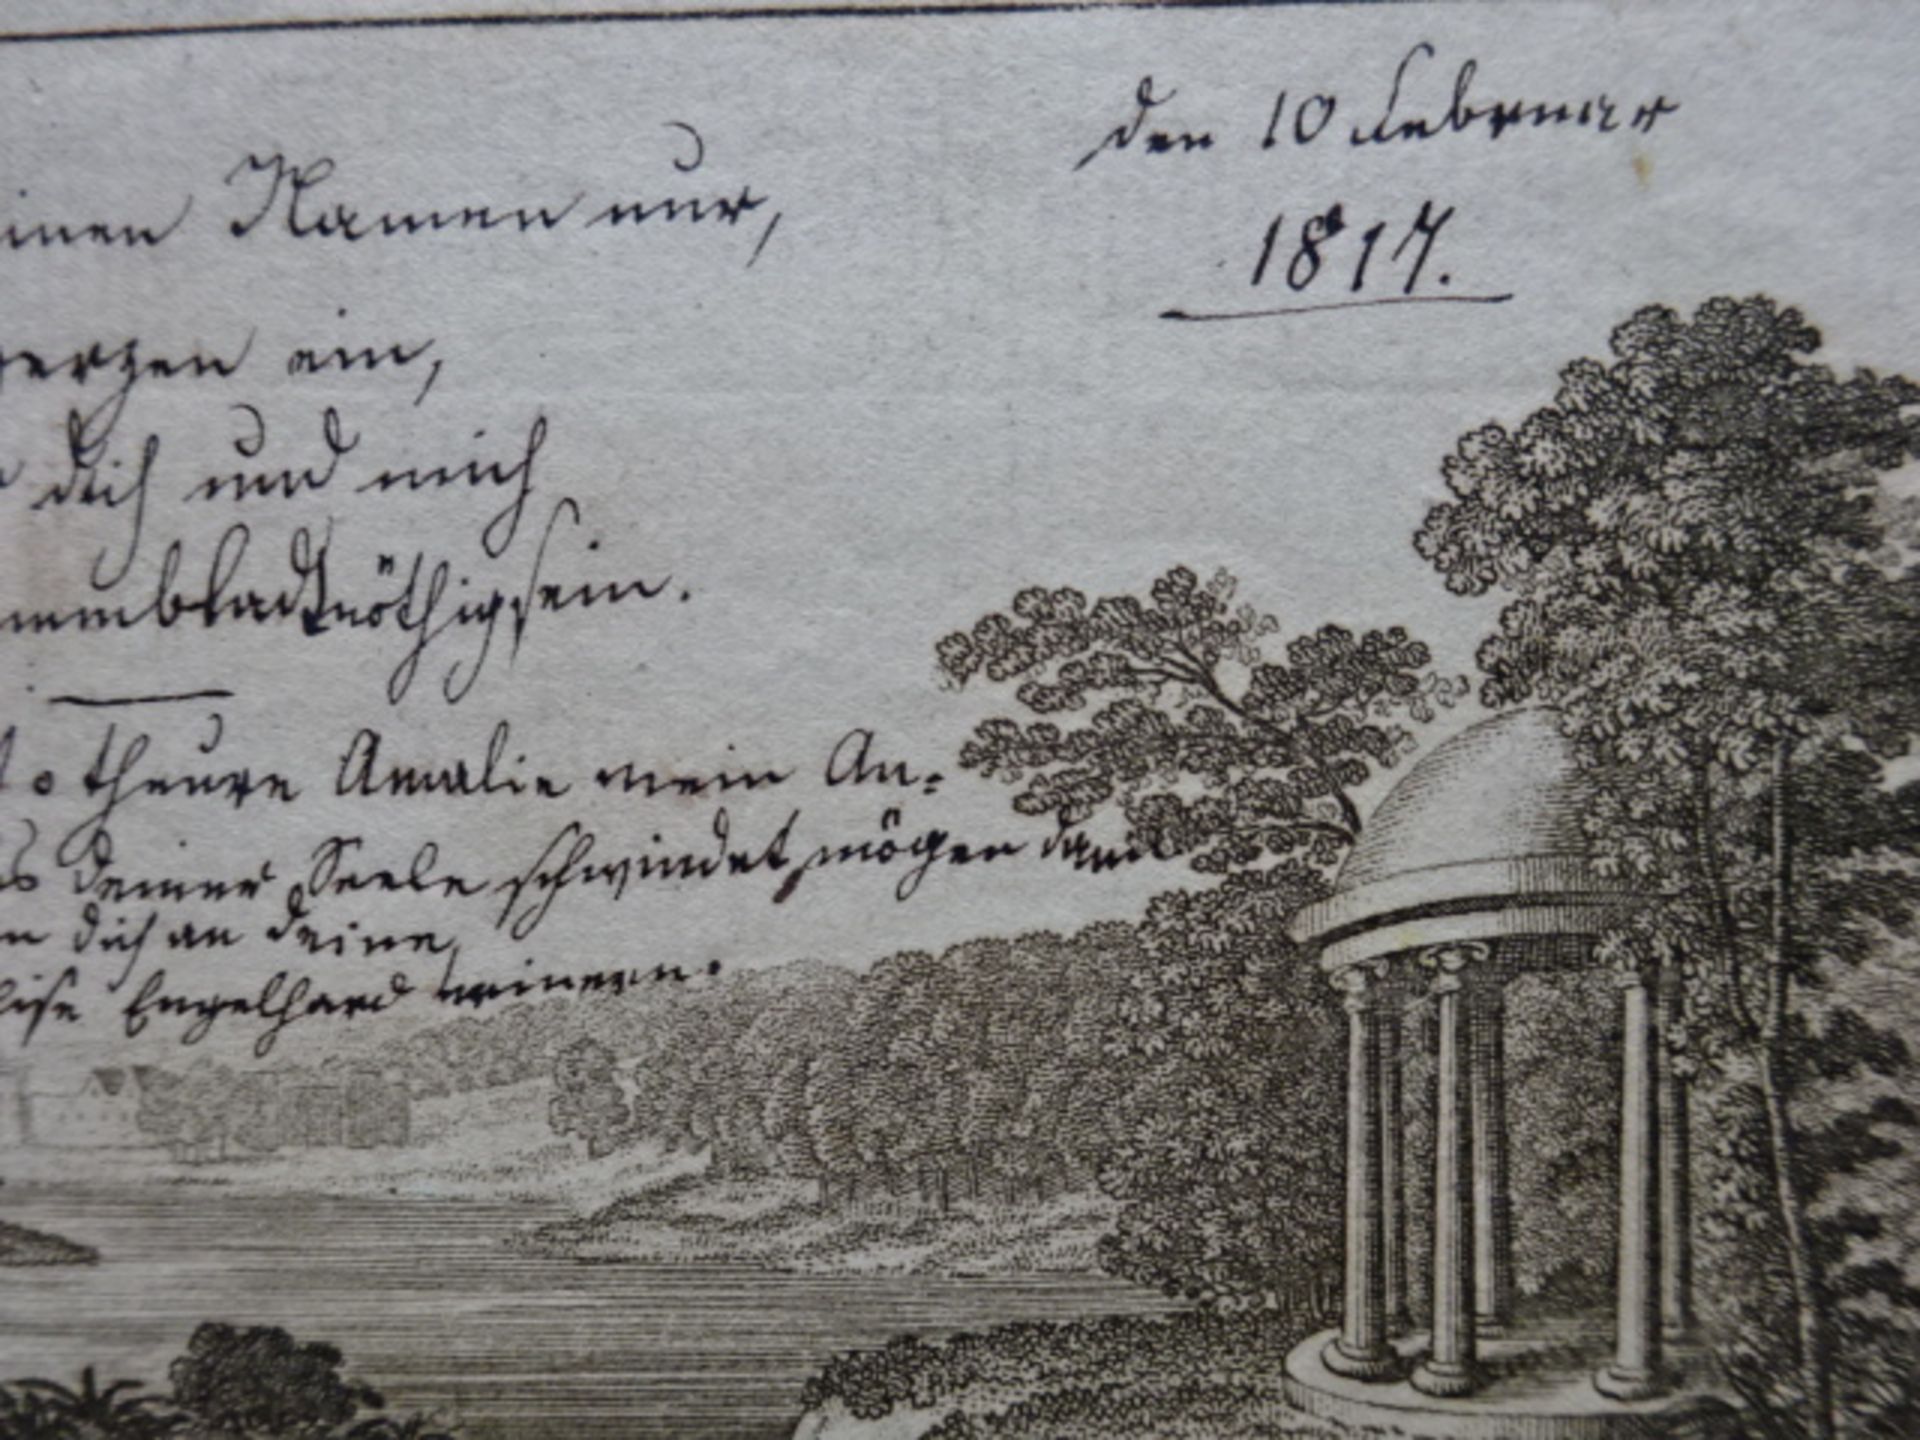 den 10 Februar
1817.
einen Namen nur,
Herzen ein,
dich und mich
mmbladt nöthig sein.
o theure Amalie mein An-
deiner Seele schwindet, mögen dann
dich an deine
lise Engelhard erinern.